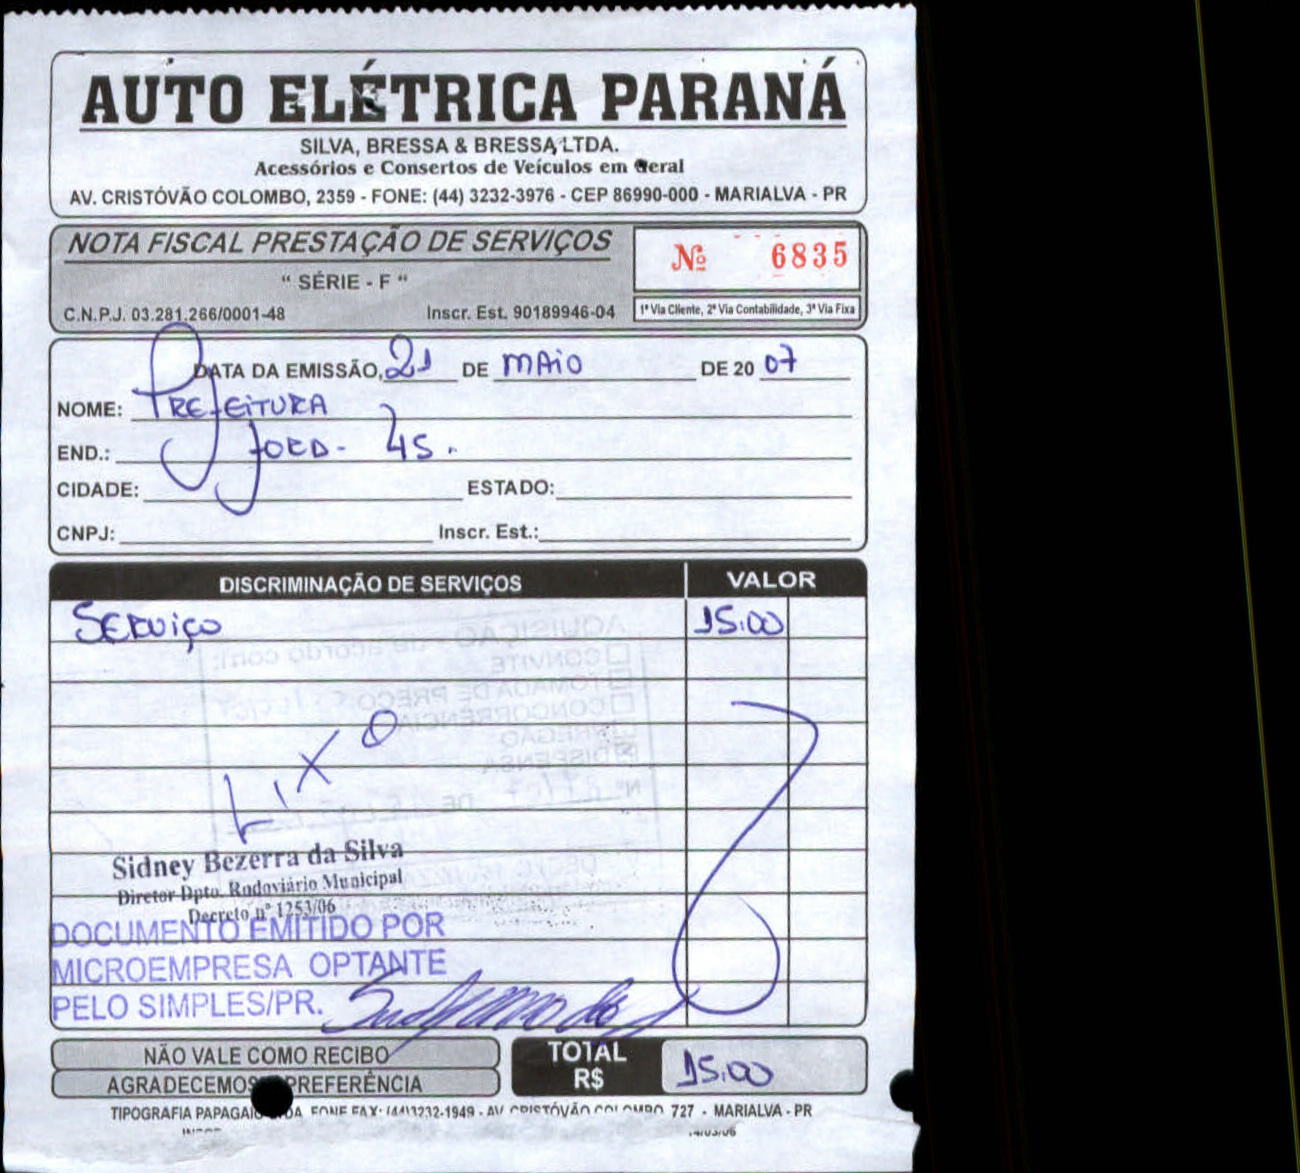 AUTO ELÉTRICA PARANÁ
SILVA, BRESSA & BRESSA LTDA.
Acessórios e Consertos de Veículos em Geral
AV. CRISTÓVÃO COLOMBO, 2359 - FONE: (44) 3232-3976 - CEP 86990-000 - MARIALVA - PR
NOTA FISCAL PRESTAÇÃO DE SERVIÇOS
Nº 6835
“ SÉRIE - F “
C.N.P.J. 03.281.266/0001-48 Inscr. Est. 90189946-04
1ª Via Cliente, 2ª Via Contabilidade, 3ª Via Fixa
DATA DA EMISSÃO, 21 DE MAIO DE 20 07
NOME: PREFEITURA
END.:
CIDADE: ESTADO:
CNPJ: Inscr. Est.:
DISCRIMINAÇÃO DE SERVIÇOS VALOR
SERVIÇO 15.00
LIXO
Sidney Bezerra da Silva
Diretor Dpto. Rodoviário Municipal
Decreto nº 1253/06
DOCUMENTO EMITIDO POR
MICROEMPRESA OPTANTE
PELO SIMPLES/PR.
NÃO VALE COMO RECIBO
AGRADECEMOS PREFERÊNCIA
TOTAL
R$ 15.00
TIPOGRAFIA PAPAGAIO LTDA FONE FAX: (44)3232-1949 - AV CRISTÓVÃO COLOMBO, 727 - MARIALVA - PR